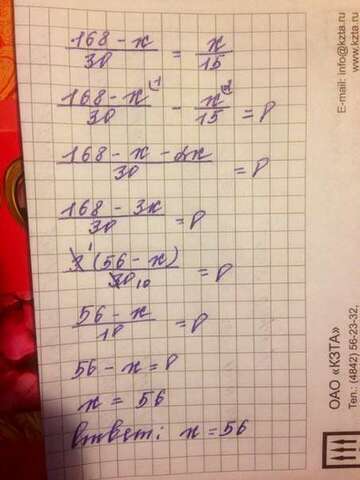 168 - x / 30 = x / 15
168 - x / 30 - x / 15 = 0
168 - x - 2x / 30 = 0
168 - 3x / 30 = 0
3 (56 - x) / 30 10 = 0
56 - x / 10 = 0
56 - x = 0
x = 56
Ответ: x = 56
E-mail: info@kzta.ru
www.kzta.ru
ОАО «КЗТА»
Тел.: (4842) 56-23-32,